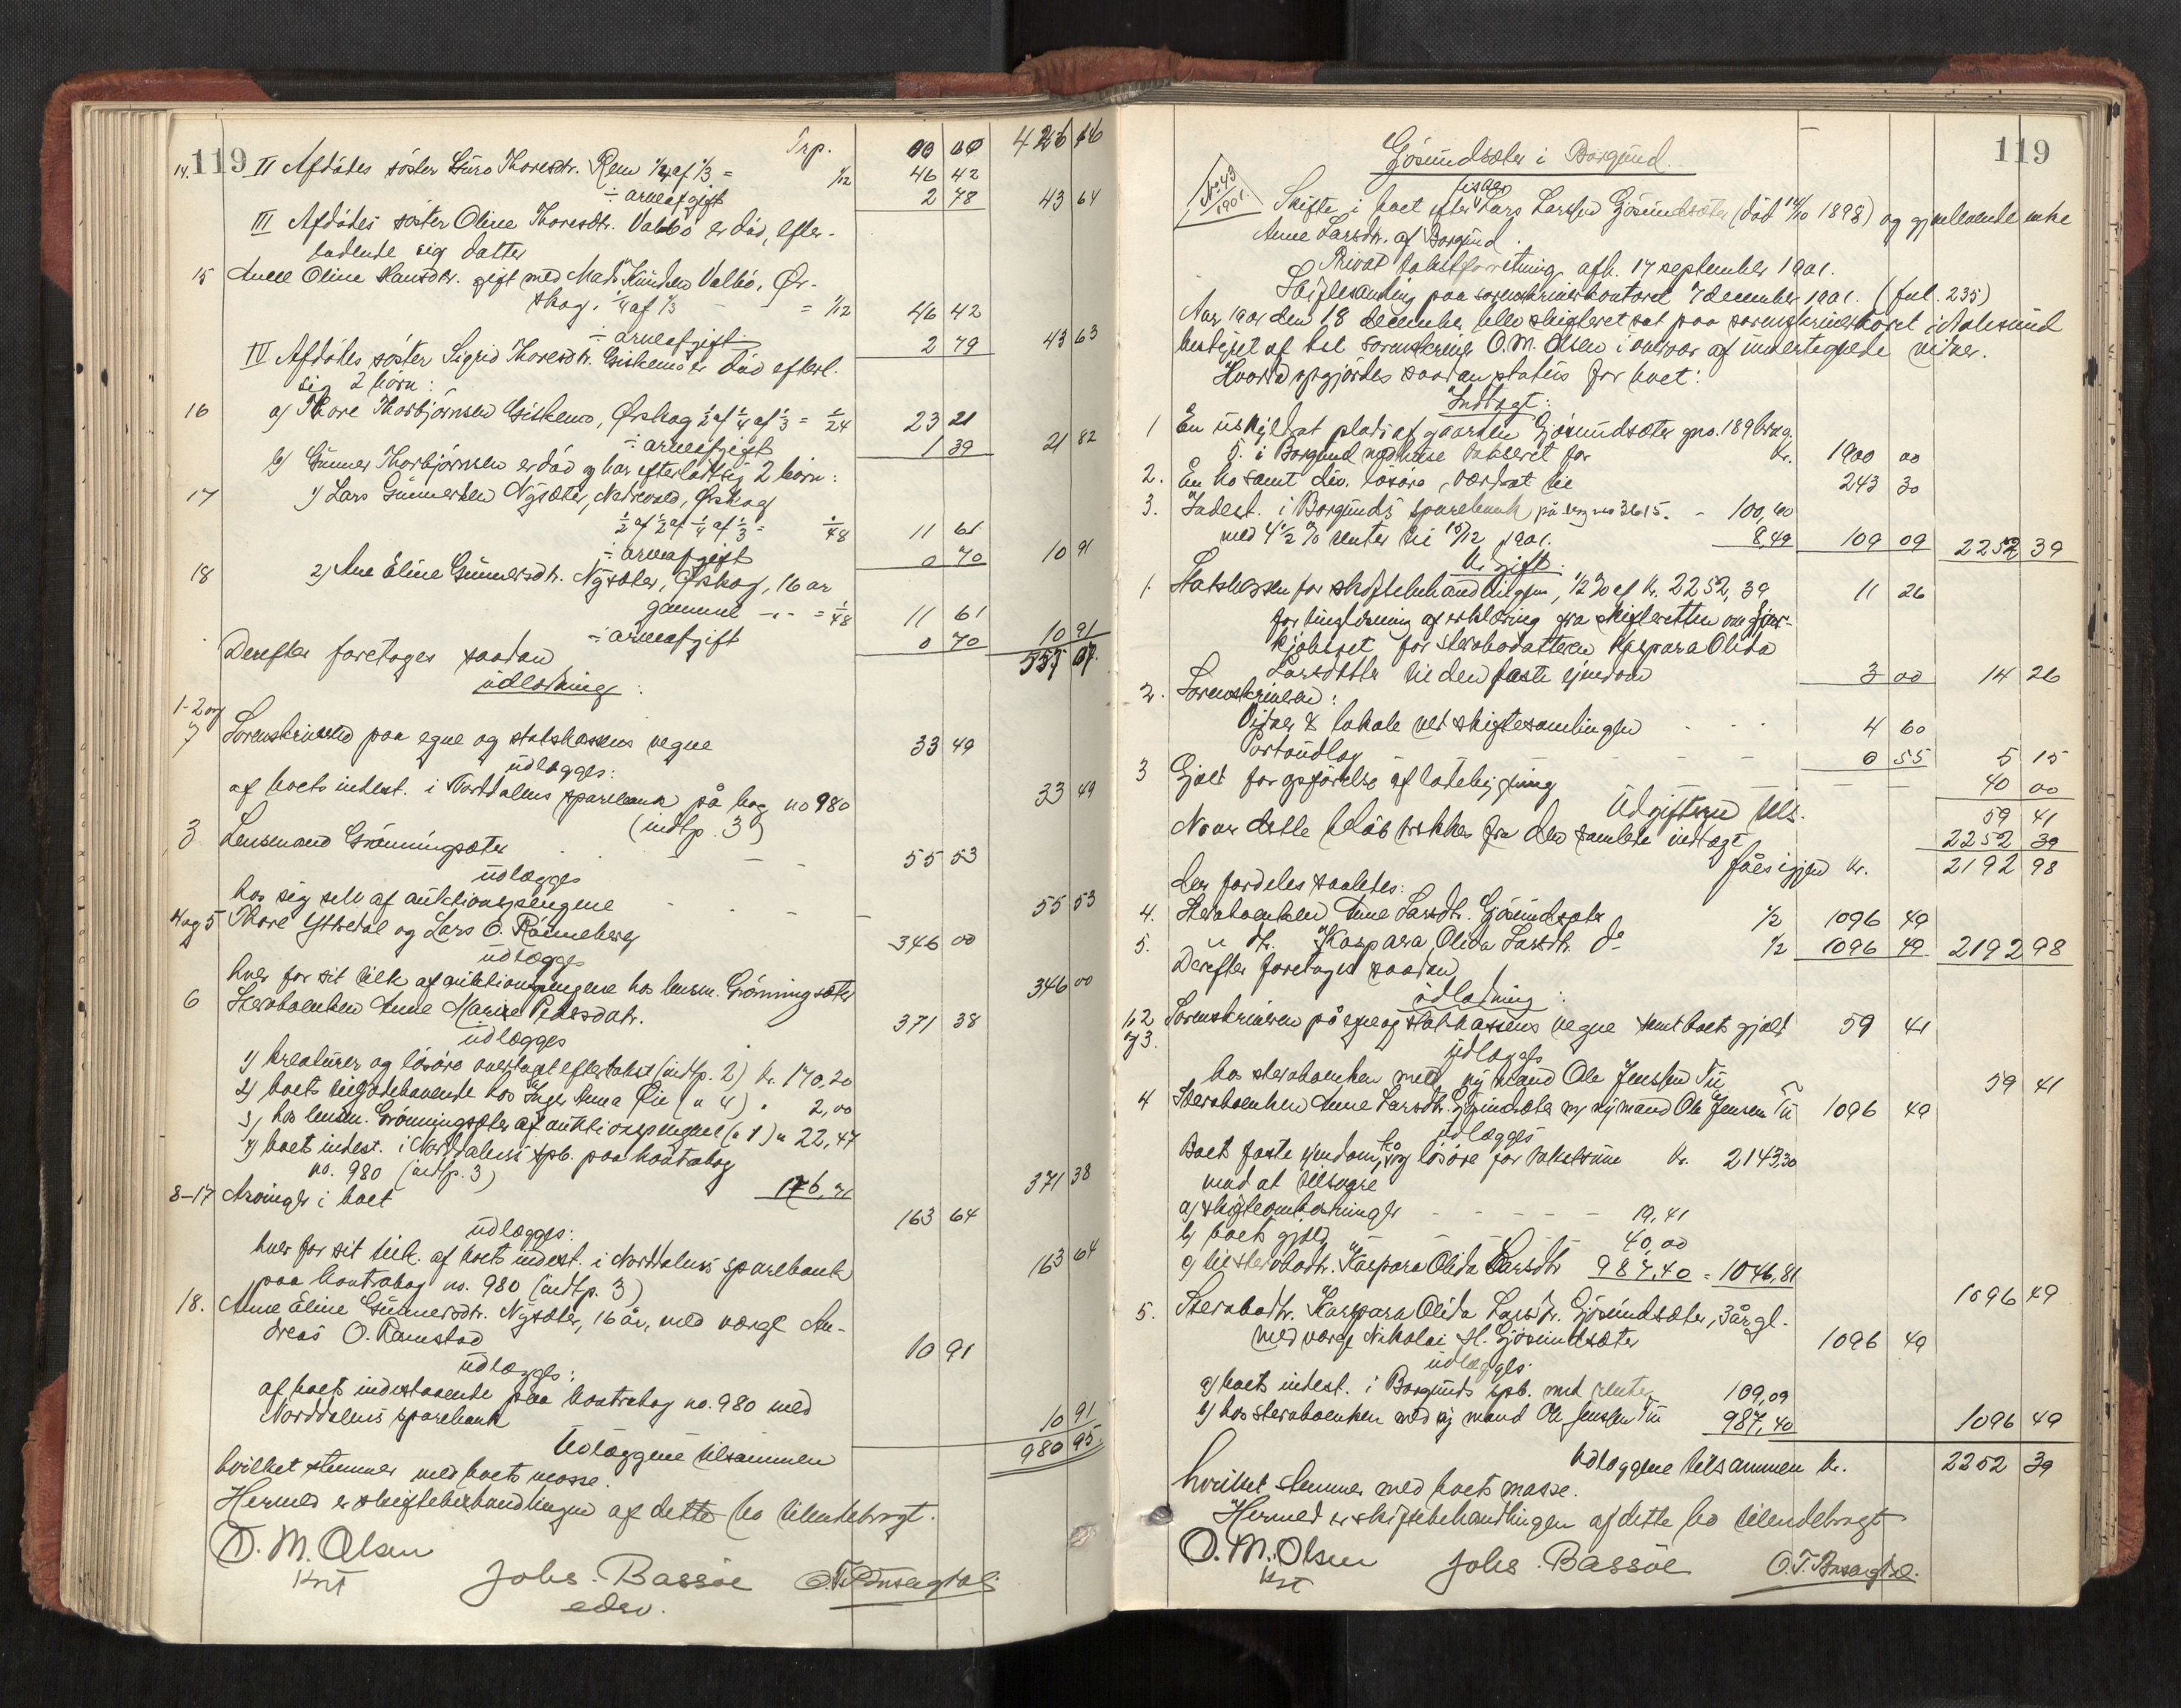 119
Trp. 00 00 426 16
14. II Afdødes søster Guro Thoresdtr. Rem 1/4 af 1/3 = 1/12 46 42
÷ arveafgift 2 78 43 64
III Afdødes søster Oline Thoresdtr. Valbø er død, efter-
ladende sig datter
15 Anne Oline Hansdtr. gift med Mads Knudsen Valbø, Ør-
skog, 1/4 af 1/3 = 1/12 46 42
÷ arveafgift 2 79 43 63
IV Afdødes søster Sigrid Thoresdtr. Giskemo er død efterl.
sig 2 børn:
16 a) Thore Thorbjørnsen Giskemo, Ørskog 1/2 af 1/4 af 1/3 = 1/24 23 21
÷ arveafgift 1 39 21 82
b) Gunner Thorbjørnsen er død og har efterladt sig 2 børn:
17 1) Lars Gunnersen Nysæter, Ørskog
1/2 af 1/2 af 1/4 af 1/3 = 1/48 11 61
÷ arveafgift 0 70 10 91
18 2) Ane Eline Gunnersdtr. Nysæter, Ørskog, 16 aar
gammel -"- = 1/48 11 61
÷ arveafgift 0 70 10 91
557 07
Derefter foretages saadan
udlodning:
1-2 og
7 Sorenskriveren paa egne og statskassens vegne 33 49
udlægges:
af boets indest. i Norddalens sparebank på bog no 980
(indtp. 3) 33 49
3 Lensmand Grønningsæter - - - 55 53
udlægges
hos sig selv af auktionspengene - - - 55 53
4 og 5 Thore Ytterdal og Lars O. Rønneberg 346 00
udlægges
hver for sit tilk. af auktionspengene hos lensm. Grønningsæter 346 00
6 Stervboenken Anne Marie Pedersdatr. 371 38
udlægges
1) kreaturer og løsøre overtaget efter takst (indtp. 2) kr. 170,20
2) boets tilgodehavende hos Inger Anna Lie (" 4) " 2,00
3) hos lensm. Grønningsæter af auktionspengene (" 1) " 22,47
4) boets indest. i Norddalens spb. paa kontrabog
no. 980 (indtp. 3) 176,71 371 38
8-17 Arvinger i boet 163 64
udlægges:
hver for sit tilk. af boets indest. i Norddalens sparebank
paa kontrabog no. 980 (indtp. 3) 163 64
18. Anne Eline Gunnersdtr. Nysæter, 16 år, med værge An-
dreas O. Ramstad 10 91
udlægges:
af boets indestaaende paa kontrabog no. 980 med
Norddalens sparebank 10 91
Udlæggene tilsammen 980 95
hvilket stemmer med boets masse.
Hermed er skiftebehandlingen af dette bo tilendebragt.
O. M. Olsen
kst
Johs. Bassøe
edsv.
119
Gjøsundsæter i Borgund.
No 43
1901.
Skifte i boet efter Lars Larssen Gjøsundsæter (død 1898) og gjenlevende enke
Anne Larsdtr. af Borgund.
Privat takstforretning afh. 17 september 1901.
Skiftesamling paa sorenskriverkontoret 7 december 1901. (fol. 235)
Aar 1901 den 18 december blev skifteret sat paa sorenskriverkontoret i Aalesund
bestyret af kst sorenskriver O. M. Olsen i overvær af undertegnede vidner.
Hvorved opgjordes saadan status for boet:
Indtægt:
1 En uskyldsat plads af gaarden Gjøsundsæter gno. 189 brug.
5. i Borgund med huse takseret for kr. 1900 00
2. En ko samt div. løsøre, værdsat til 243 30
3. Indest. i Borgunds sparebank på bog no 3615. - 100,60
med 4 1/2 % renter til 1901. 8,49 109 09 2252 39
Udgift:
1. Statskassen for skiftebehandlingen, 1/2 % af kr. 2252,39 11 26
for tinglysning af erklæring fra skifteretten om hjem-
kjøbsret for stervbodatteren Kaspara Olida
Larsdatter til den faste eiendom 3 00 14 26
2. Sorenskriveren:
Vidner & lokale ved skiftesamlingen - - - 4 60
Portoudlæg - - - 0 55 5 15
3 Gjæld for opførelse af ladebygning - - 40 00
Udgifterne tils. 59 41
Naar dette beløb trækkes fra den samlede indtægt 2252 39
fåes igjen kr. 2192 98
der fordeles saaledes:
4. Stervboenken Anne Larsdtr. Gjøsundsæter 1/2 1096 49
5. " dtr. Kaspara Olida Larsdtr. do 1/2 1096 49 2192 98
Derefter foretages saadan
udlodning:
1, 2
og 3. Sorenskriveren på egne og statskassens vegne samt boets gjæld 59 41
udlægges
hos stervboenken med ny mand Ole Jenssen Tu 59 41
4 Stervboenken Anne Larsdtr. Gjøsundsæter m/ ny mand Ole Jensen Tu 1096 49
udlægges
Boets faste eiendom, ko og løsøre for takstsum kr. 2143,30
mod at tilsvare
a) skifteomkostninger - - - - 19,41
b) boets gjæld - - - 40,00
c) til stervbodtr. Kaspara Olida Larsdtr 987,40 = 1046,81 1096 49
5. Stervbodtr. Kaspara Olida Larsdtr. Gjøsundsæter, 3 år gl.
med værge Nikolai H. Gjøsundsæter 1096 49
udlægges:
a) boets indest. i Borgunds spb. med renter 109,09
b) hos stervboenken med ny mand Ole Jenssen Tu 987,40 1096 49
Udlæggene tilsammen kr. 2252 39
hvilket stemmer med boets masse.
Hermed er skiftebehandlingen af dette bo tilendebragt
O. M. Olsen
kst
Johs. Bassøe